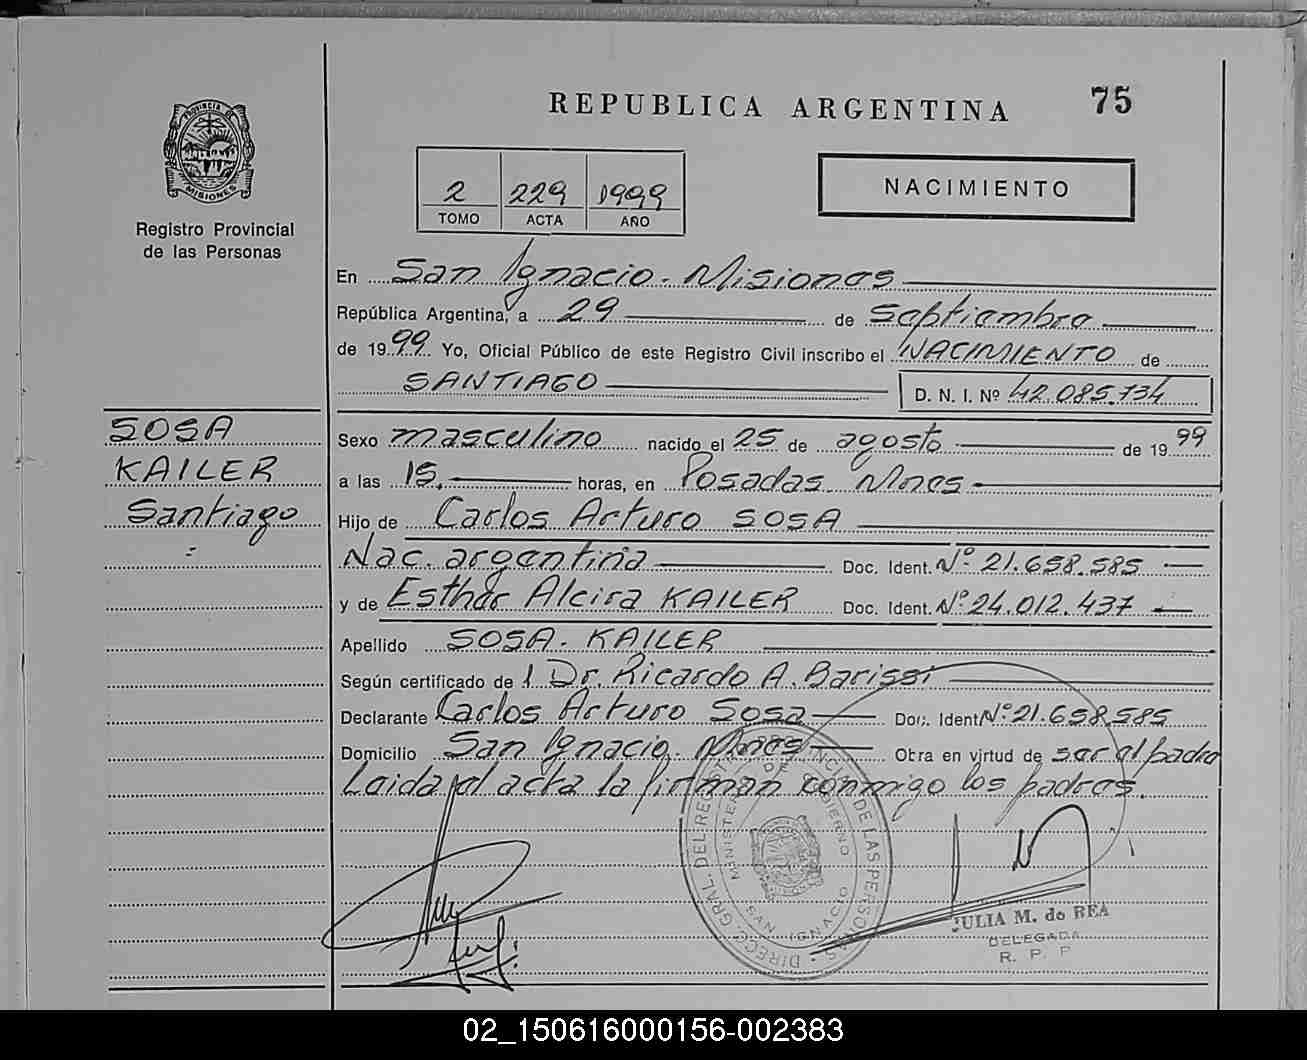 REPUBLICA ARGENTINA 75
PROVINCIA DE
MISIONES
Registro Provincial
de las Personas
2 229 1999
TOMO ACTA AÑO
NACIMIENTO
En San Ignacio - Misiones
República Argentina, a 29 de septiembre
de 1999 Yo, Oficial Público de este Registro Civil inscribo el NACIMIENTO de
SANTIAGO D. N. I. Nº 42.085.734
SOSA
KAILER
Santiago
Sexo masculino nacido el 25 de agosto de 1999
a las 15. horas, en Posadas Mnes
Hijo de Carlos Arturo SOSA
Nac. argentina Doc. Ident. Nº 21.658.585
y de Esther Alcira KAILER Doc. Ident. Nº 24.012.437
Apellido SOSA - KAILER
Según certificado de Dr. Ricardo A. Barissi
Declarante Carlos Arturo Sosa Doc. Ident. Nº 21.658.585
Domicilio San Ignacio - Mnes Obra en virtud de ser el padre
Leida el acta la firman conmigo los padres.
DIRECC. GRAL. DEL REG. PROVINCIAL DE LAS PERSONAS
MINISTERIO DE GOBIERNO
SAN IGNACIO
JULIA M. de REA
DELEGADA
R. P. P
02_150616000156-002383